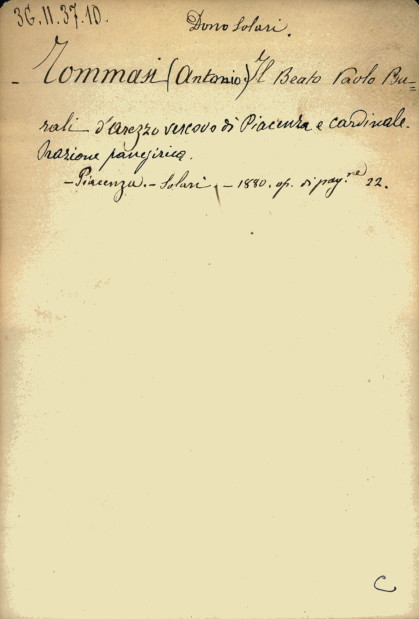 3G.II.37.10.
Dono Solari.
- Tommasi (Antonio) Il Beato Paolo Bu=
rali d'Arezzo vescovo di Piacenza e cardinale.
Orazione panegirica.
- Piacenza. - Solari, - 1880. op. di pag.ne 22.
C